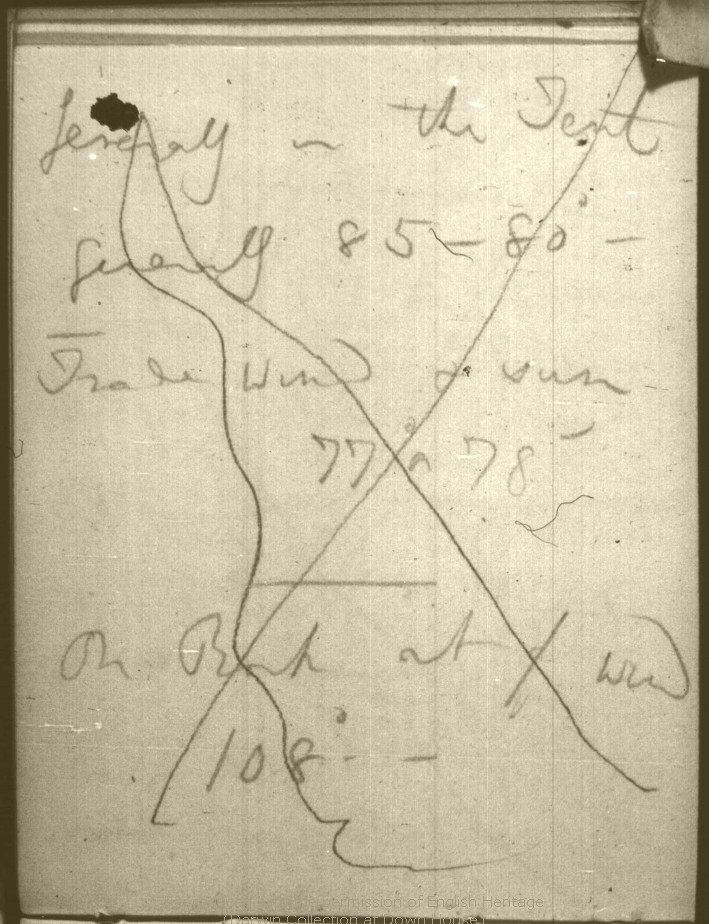 generally in the Tent
generally 85 – 80° –
Trade wind & sun
77° a 78 –
On Bank out of wind
108° – –
mission of English Heritage
(Darwin Collection at Down House)